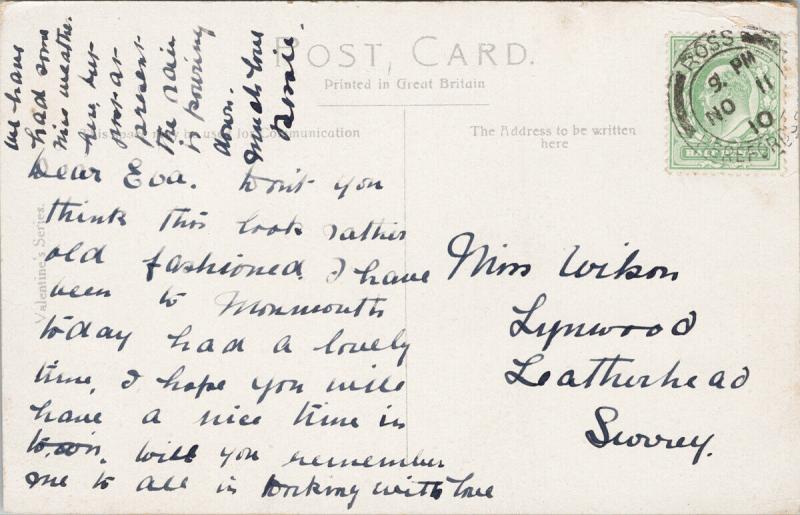 POST CARD.
Printed in Great Britain
This space may be used for Communication
The Address to be written
here
Valentine's Series.
ROSS
9. PM
NO 11
10
HEREFORDS
HALFPENNY
Dear Eva. Don't you
think this look rather
old fashioned. I have
been to Monmouth
today had a lovely
time, I hope you will
have a nice time in
town. Will you remember
me to all in Dorking with love
we have
had some
nice weather
here, but
just at
present
the rain
is pouring
down.
Much love
Bessie.
Miss Wilson
Lynwood
Leatherhead
Surrey.